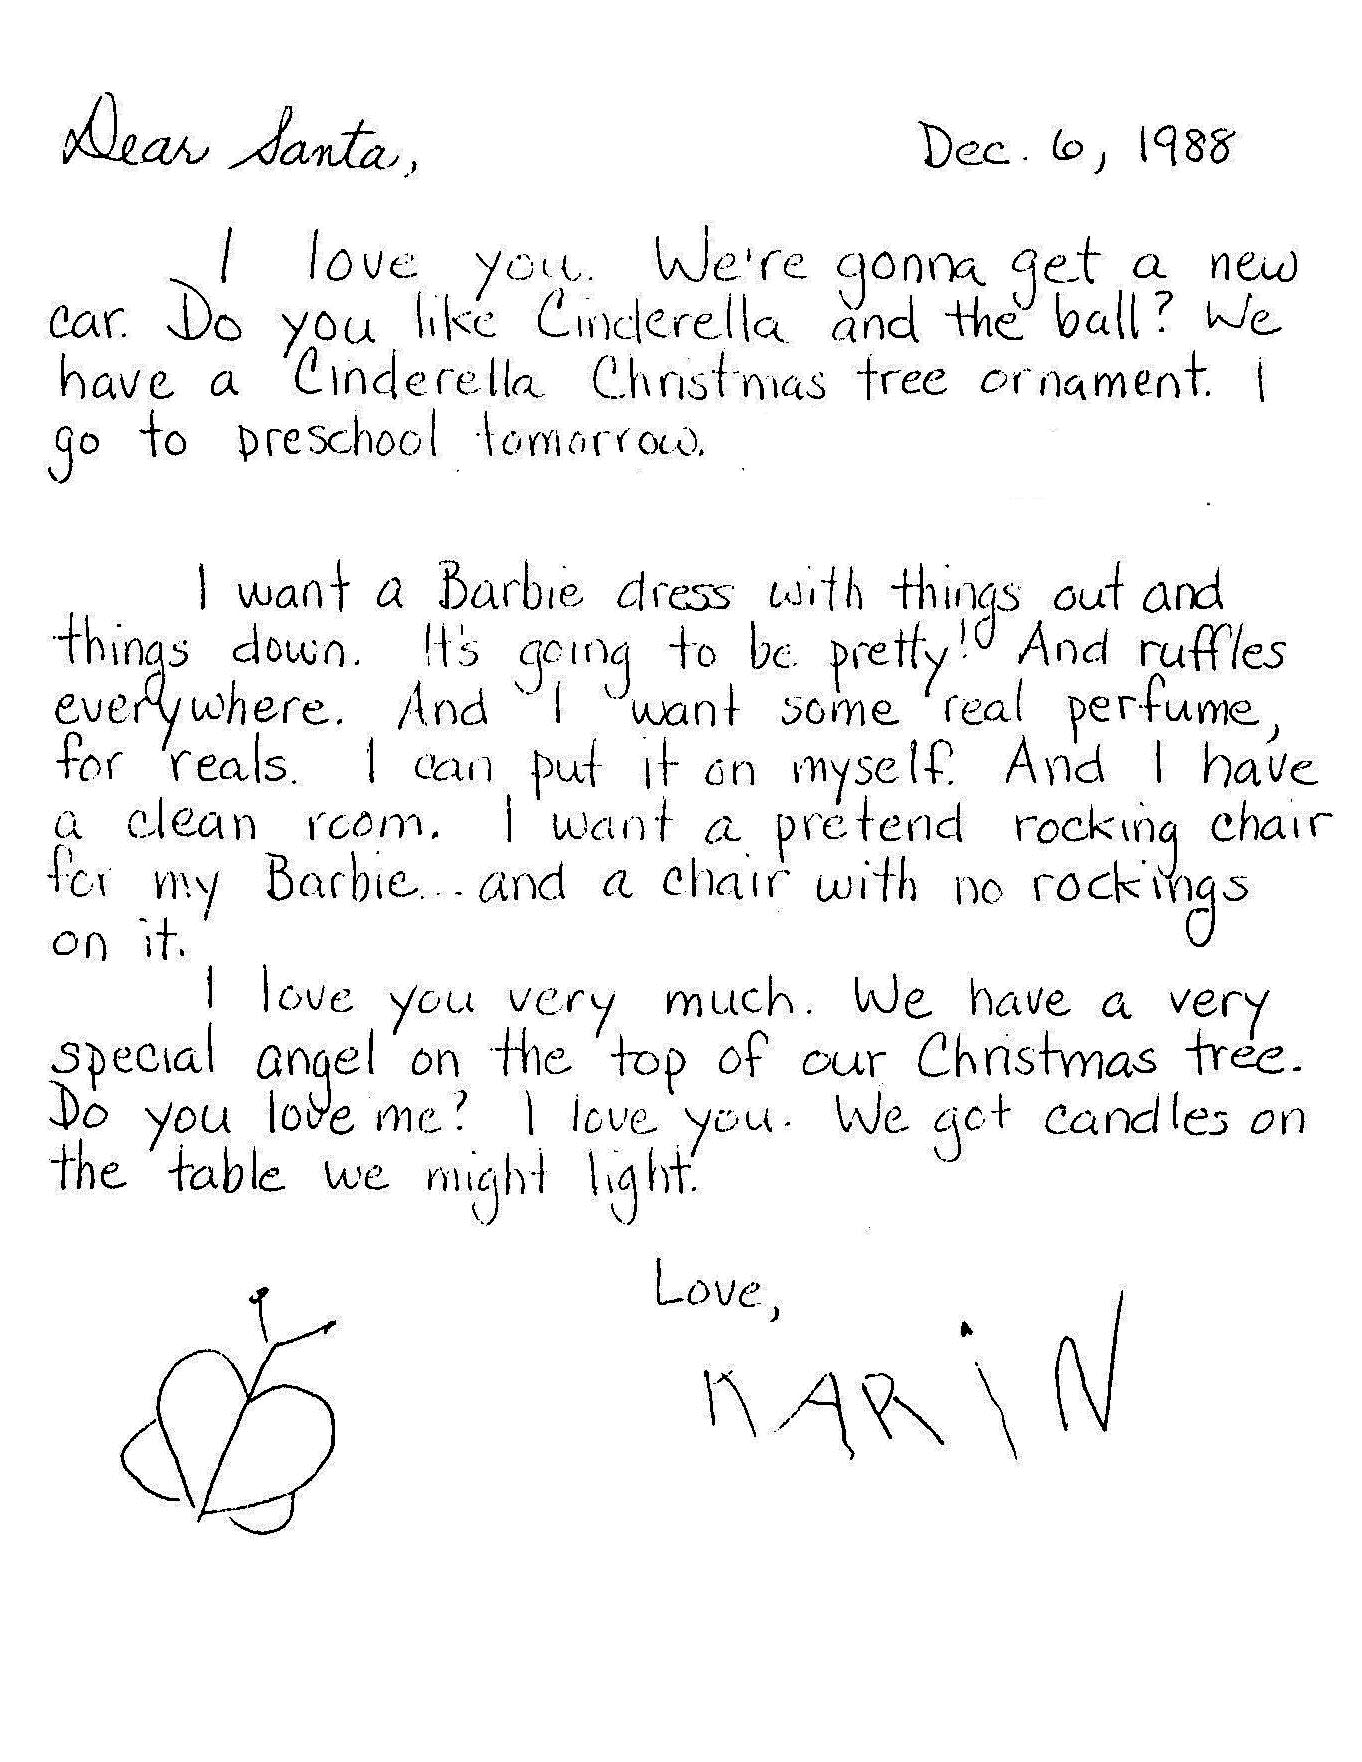 Dear Santa, Dec. 6, 1988
I love you. We're gonna get a new
car. Do you like Cinderella and the ball? We
have a Cinderella Christmas tree ornament. I
go to preschool tomorrow.
I want a Barbie dress with things out and
things down. It's going to be pretty! And ruffles
everywhere. And I want some real perfume,
for reals. I can put it on myself. And I have
a clean room. I want a pretend rocking chair
for my Barbie... and a chair with no rockings
on it.
I love you very much. We have a very
special angel on the top of our Christmas tree.
Do you love me? I love you. We got candles on
the table we might light.
Love,
KARiN